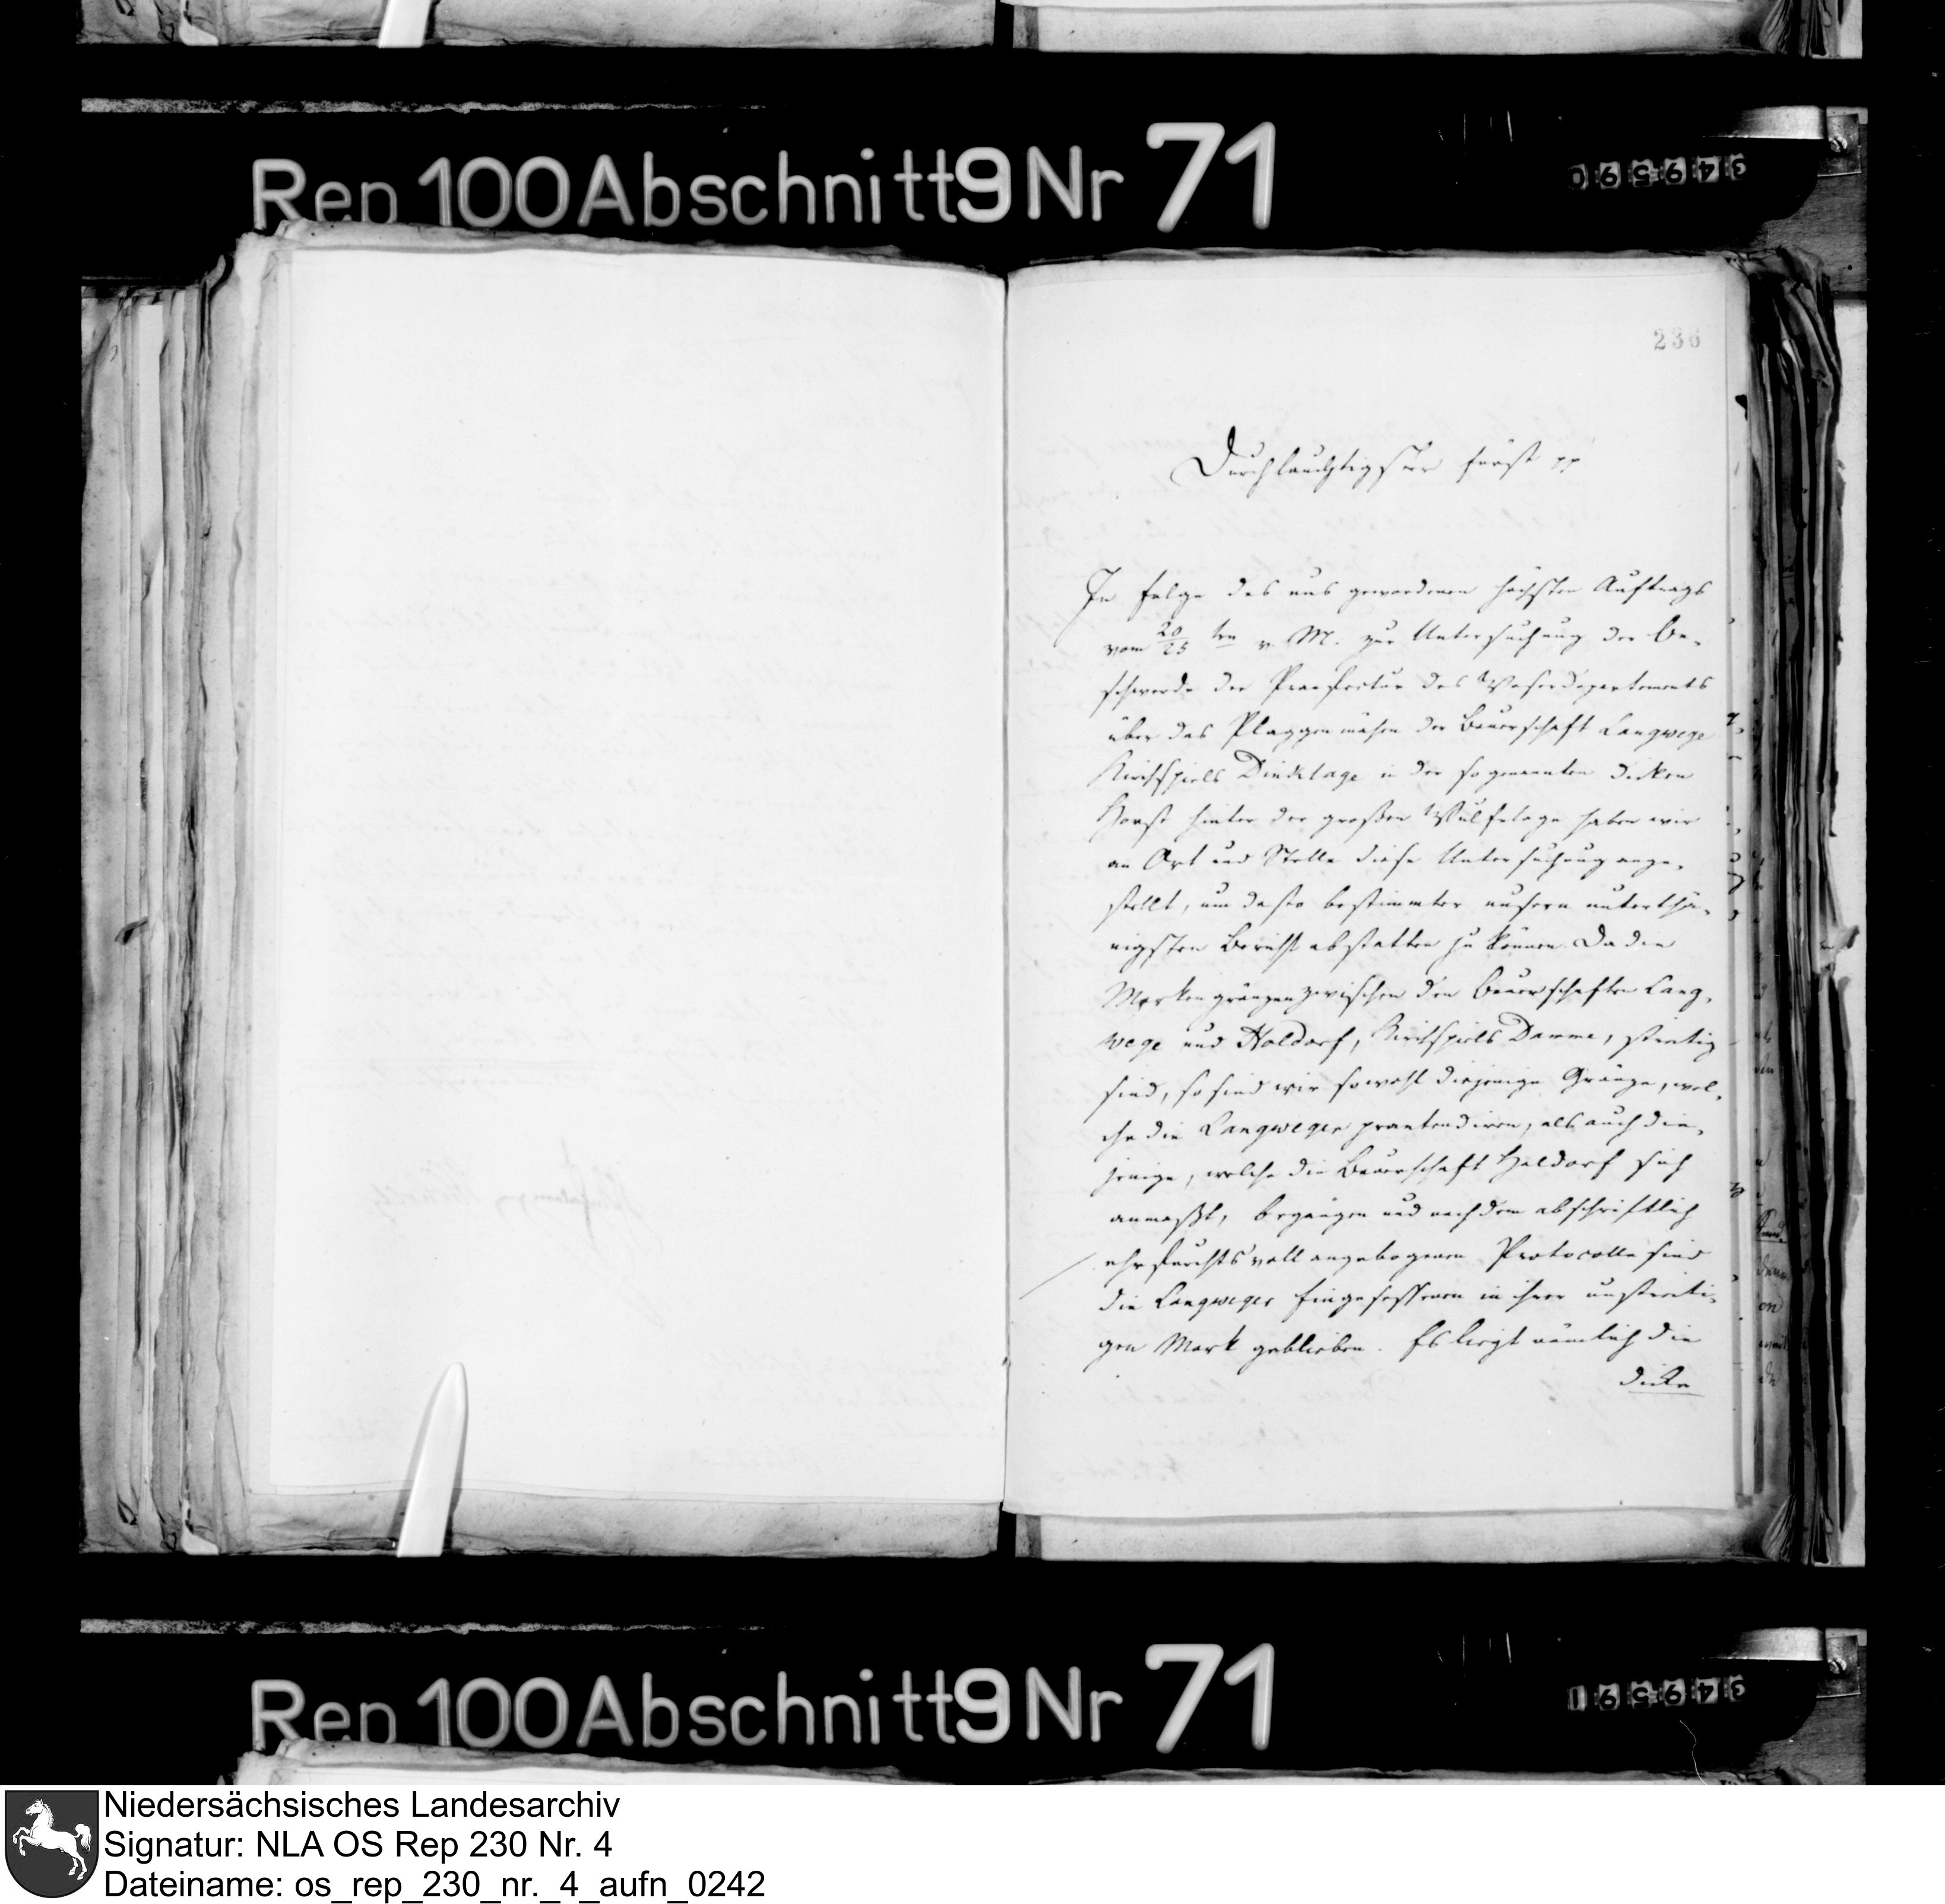 Rep 100 Abschnitt 9 Nr 71
349590
236
Durchlauchtigster Fürst pp
In Folge des uns gewordenen höchsten Auftrags
vom 20/25 ten v. M. zur Untersuchung der Be-
schwerde der Praefectur des Weserdepartements
über das Plaggenmähen der Bauerschaft Langwege
Kirchspiels Dincklage in der sogenannten dicken
Horst hinter der großen Wulfelage haben wir
an Ort und Stelle diese Untersuchung ange-
stellt, um desto bestimmter unsern unterthä-
nigsten Bericht abstatten zu können. Da die
Markengränzen zwischen den Bauerschaften Lang-
wege und Holdorf, Kirchspiels Damme, streitig
sind, so sind wir sowohl diejenige Gränze, wel-
che die Langweger praetendiren, als auch die-
jenige, welche die Bauerschaft Holdorf sich
anmaßt, begangen und nach dem abschriftlich
ehrfurchtsvoll angebogenen Protocolle sind
die Langweger Eingesessenen in ihrer unstreiti-
gen Mark geblieben. Es liegt nämlich die
dicke
Rep 100 Abschnitt 9 Nr 71
349591
Niedersächsisches Landesarchiv
Signatur: NLA OS Rep 230 Nr. 4
Dateiname: os_rep_230_nr._4_aufn_0242